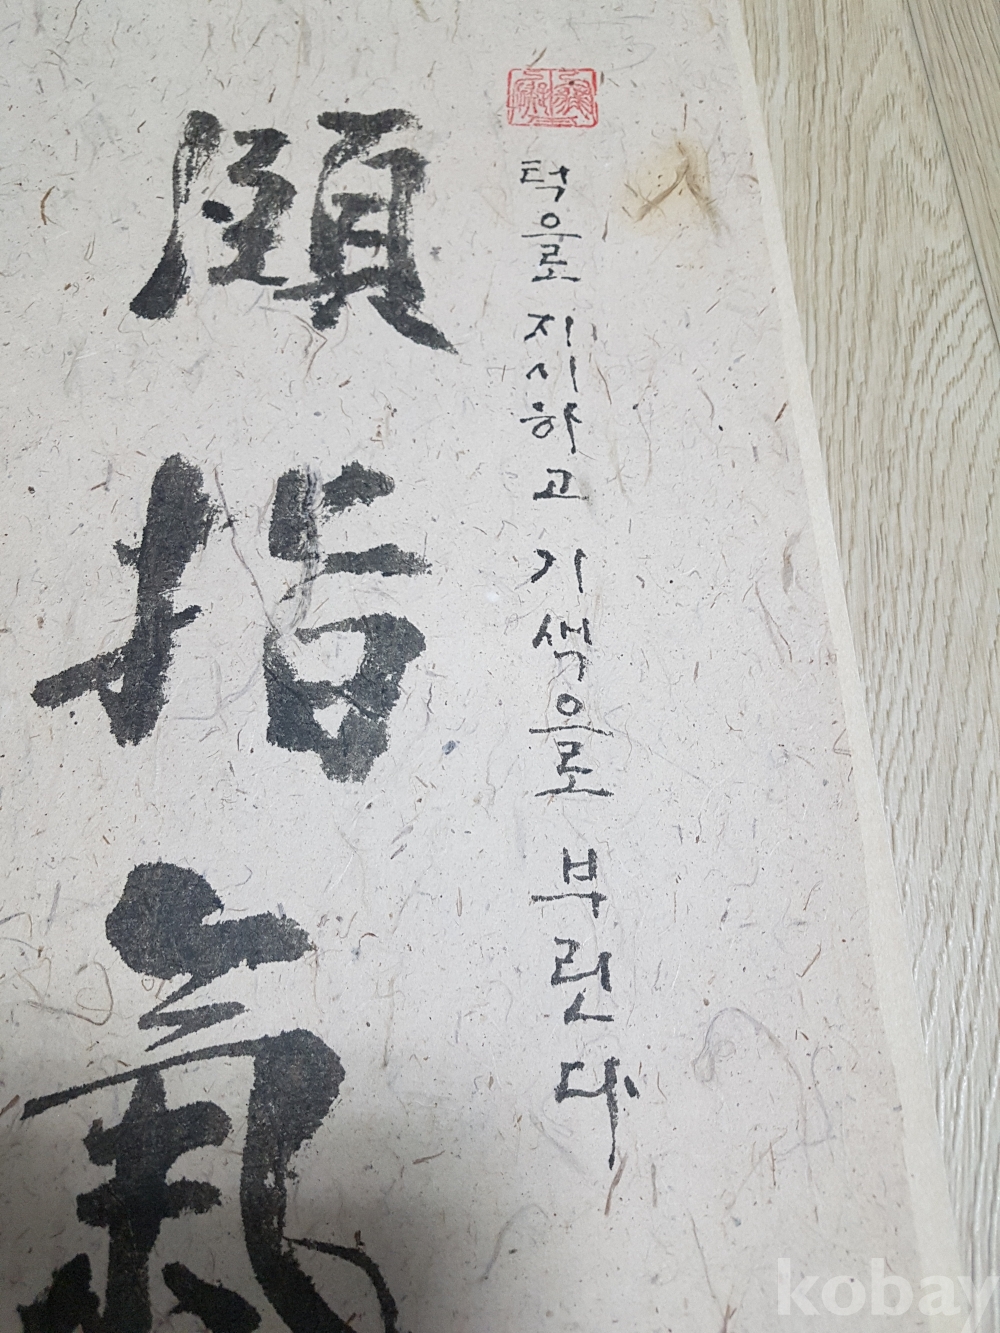 턱으로 지시하고 기색으로 부린다
頤指氣
kobay